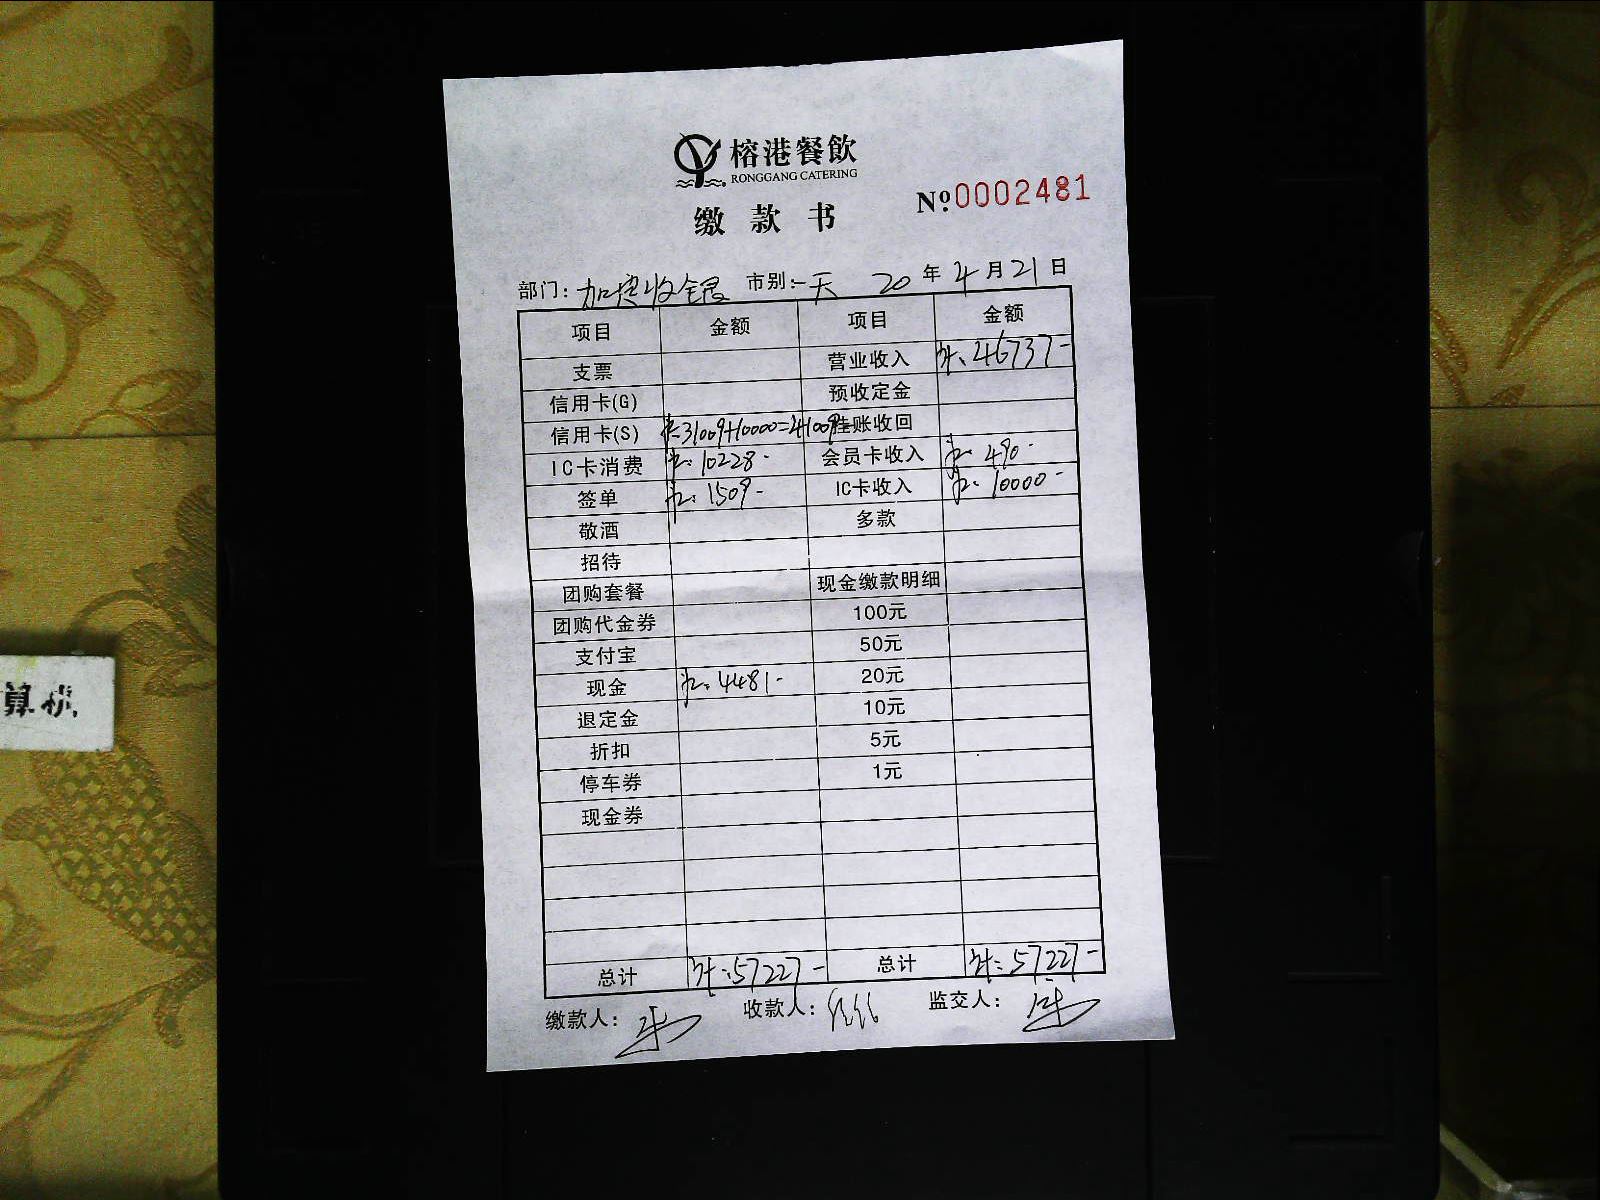 榕港餐飲
RONGGANG CATERING
缴款书
Nº.0002481
部门: 收银 市别: 一天 20 年 4 月 21 日
项目 金额 项目 金额
支票 营业收入 46737-
信用卡(G) 预收定金
信用卡(S) 31009+10000=41009 挂账收回
IC卡消费 10228- 会员卡收入 490-
签单 1509- IC卡收入 10000-
敬酒 多款
招待
团购套餐 现金缴款明细
团购代金券 100元
支付宝 50元
现金 4481- 20元
退定金 10元
折扣 5元
停车券 1元
现金券
总计 57227- 总计 57227-
缴款人: 收款人: 监交人:
算